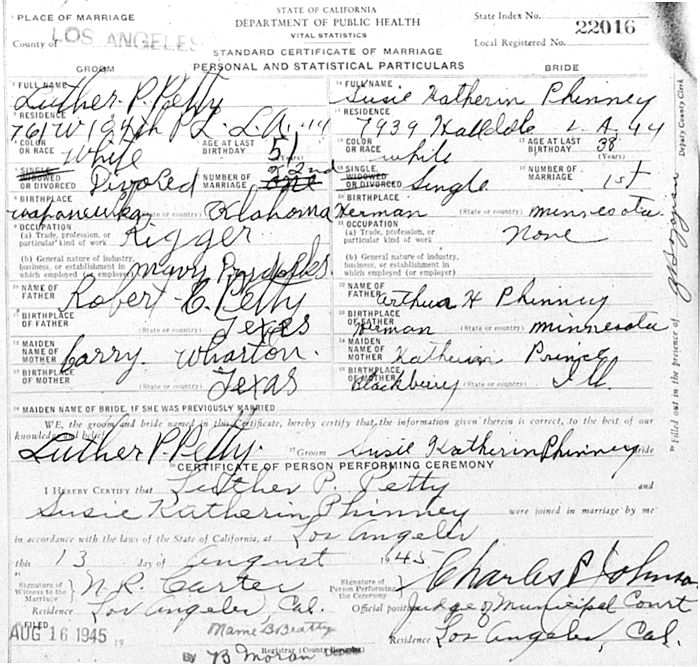 STATE OF CALIFORNIA
PLACE OF MARRIAGE DEPARTMENT OF PUBLIC HEALTH State Index No.
VITAL STATISTICS 22016
County of LOS ANGELES STANDARD CERTIFICATE OF MARRIAGE Local Registered No.
GROOM PERSONAL AND STATISTICAL PARTICULARS BRIDE
FULL NAME Luther P. Petty
FULL NAME Susie Katherin Phinney
RESIDENCE 761 W L.A.
RESIDENCE 7939 L.A. 44
COLOR OR RACE White AGE AT LAST BIRTHDAY 51 (Years)
COLOR OR RACE white AGE AT LAST BIRTHDAY 38 (Years)
SINGLE WIDOWED OR DIVORCED Divorced NUMBER OF MARRIAGE 2nd
SINGLE, WIDOWED OR DIVORCED Single NUMBER OF MARRIAGE 1st
BIRTHPLACE (State or country) Oklahoma
BIRTHPLACE Herman (State or country) Minnesota
OCCUPATION
(a) Trade, profession, or particular kind of work Rigger
(b) General nature of industry, business, or establishment in which employed (or employer)
OCCUPATION
(a) Trade, profession, or particular kind of work None
(b) General nature of industry, business, or establishment in which employed (or employer)
NAME OF FATHER Robert E. Petty
NAME OF FATHER Arthur H Phinney
BIRTHPLACE OF FATHER (State or country) Texas
BIRTHPLACE OF FATHER Herman (State or country) Minnesota
MAIDEN NAME OF MOTHER Carry Wharton
MAIDEN NAME OF MOTHER Katherin Prince
BIRTHPLACE OF MOTHER (State or country) Texas
BIRTHPLACE OF MOTHER Blackberry (State or country) Ill.
MAIDEN NAME OF BRIDE, IF SHE WAS PREVIOUSLY MARRIED
WE, the groom and bride named in this Certificate, hereby certify that the information given therein is correct, to the best of our
knowledge and belief.
Luther P. Petty. Groom Susie Katherin Phinney Bride
CERTIFICATE OF PERSON PERFORMING CEREMONY
I HEREBY CERTIFY that Luther P. Petty and
Susie Katherin Phinney were joined in marriage by me
in accordance with the laws of the State of California, at Los Angeles
this 13 day of August 1945
Signature of Witness to the Marriage N.R. Carter
Signature of Person Performing the Ceremony Charles P Johnson
Residence Los Angeles, Cal. Official position Judge of Municipal Court
FILED AUG 16 1945 19 Mame B Beatty
Residence Los Angeles, Cal.
Registrar (County Recorder)
By B Moran
Filled out in the presence of Deputy County Clerk